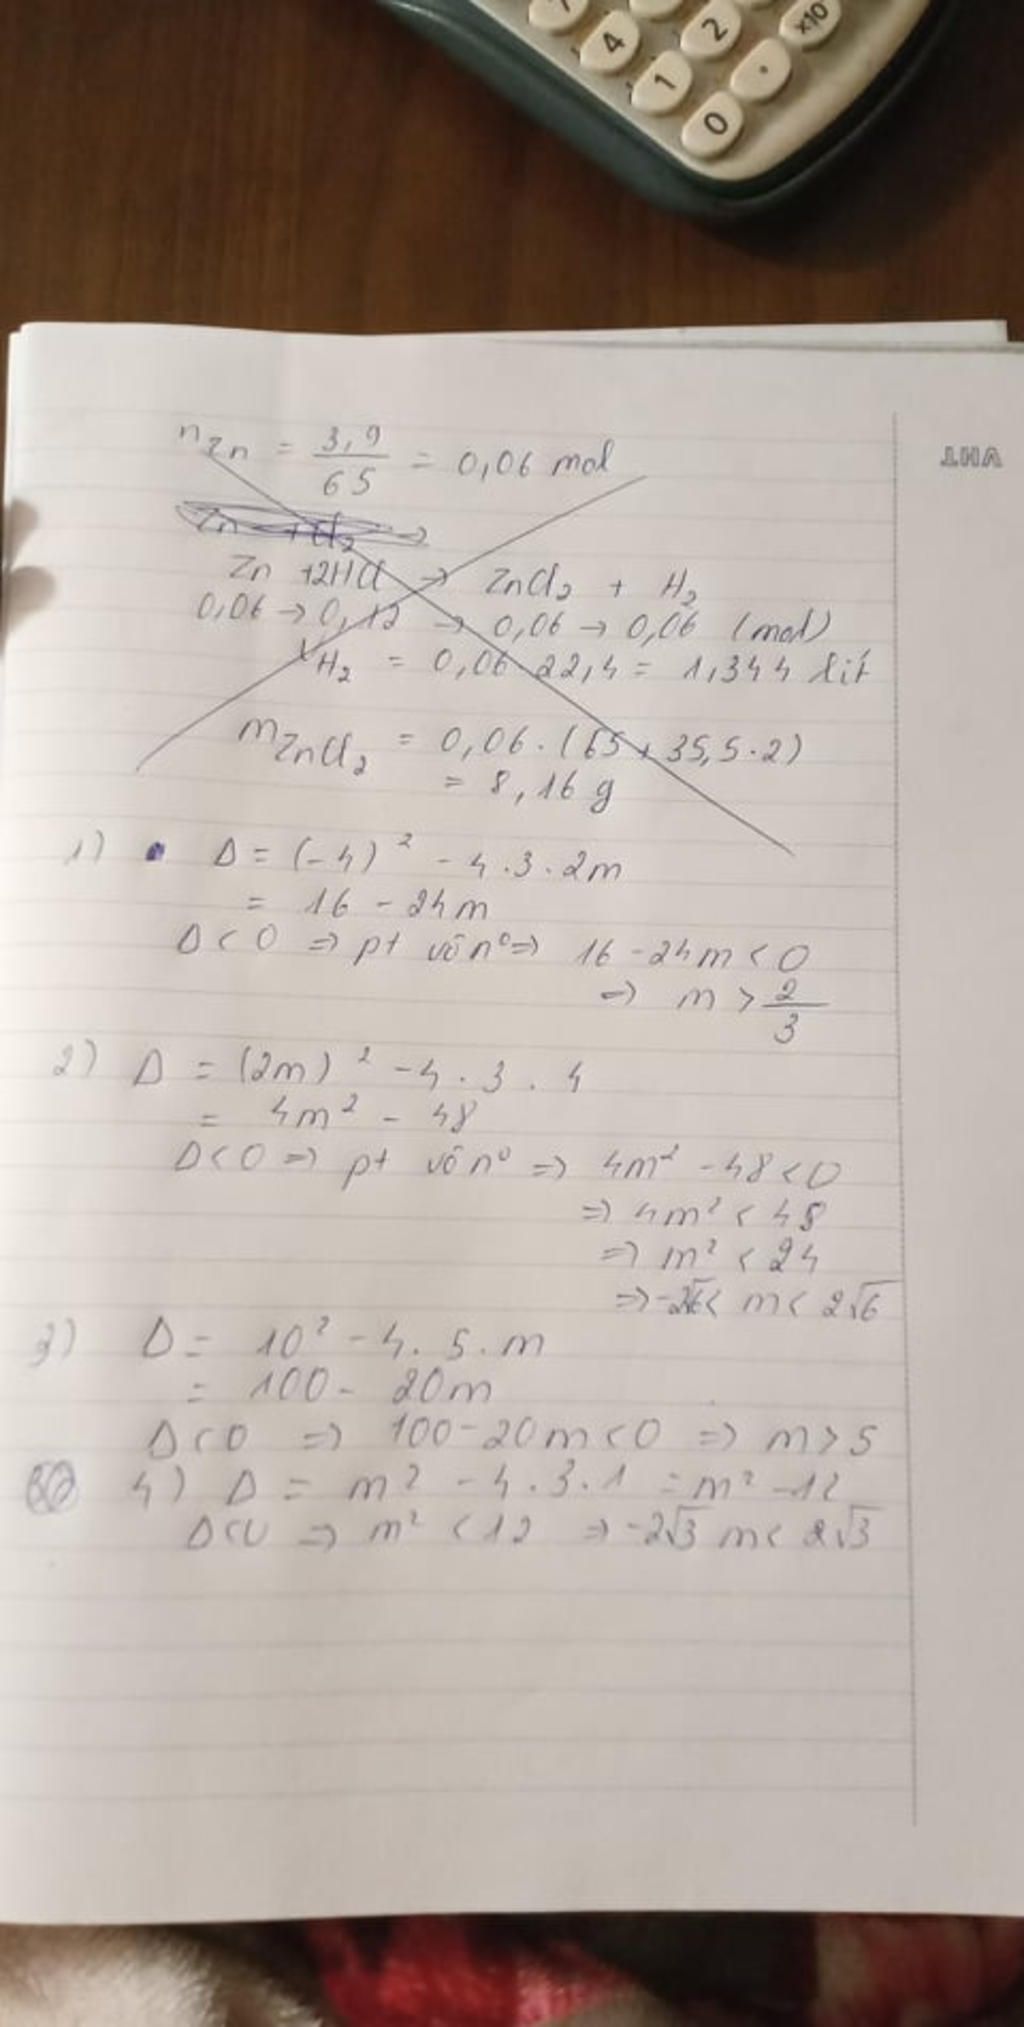 7
4
1
2
0
.
×10
VHT
n Zn = 3,9/65 = 0,06 mol
Zn + Cl₂ →
Zn + 2HCl → ZnCl₂ + H₂
0,06 → 0,12 → 0,06 → 0,06 (mol)
V H₂ = 0,06 . 22,4 = 1,344 lít
m ZnCl₂ = 0,06 . (65 + 35,5 . 2)
= 8,16 g
1) Δ = (-4)² - 4 . 3 . 2m
= 16 - 24m
Δ < 0 => pt vô n⁰ => 16 - 24m < 0
=> m > 2/3
2) Δ = (2m)² - 4 . 3 . 4
= 4m² - 48
Δ < 0 => pt vô n⁰ => 4m² - 48 < 0
=> 4m² < 48
=> m² < 24
=> -2√6 < m < 2√6
3) Δ = 10² - 4 . 5 . m
= 100 - 20m
Δ < 0 => 100 - 20m < 0 => m > 5
4) Δ = m² - 4 . 3 . 1 = m² - 12
Δ < 0 => m² < 12 => -2√3 m < 2√3